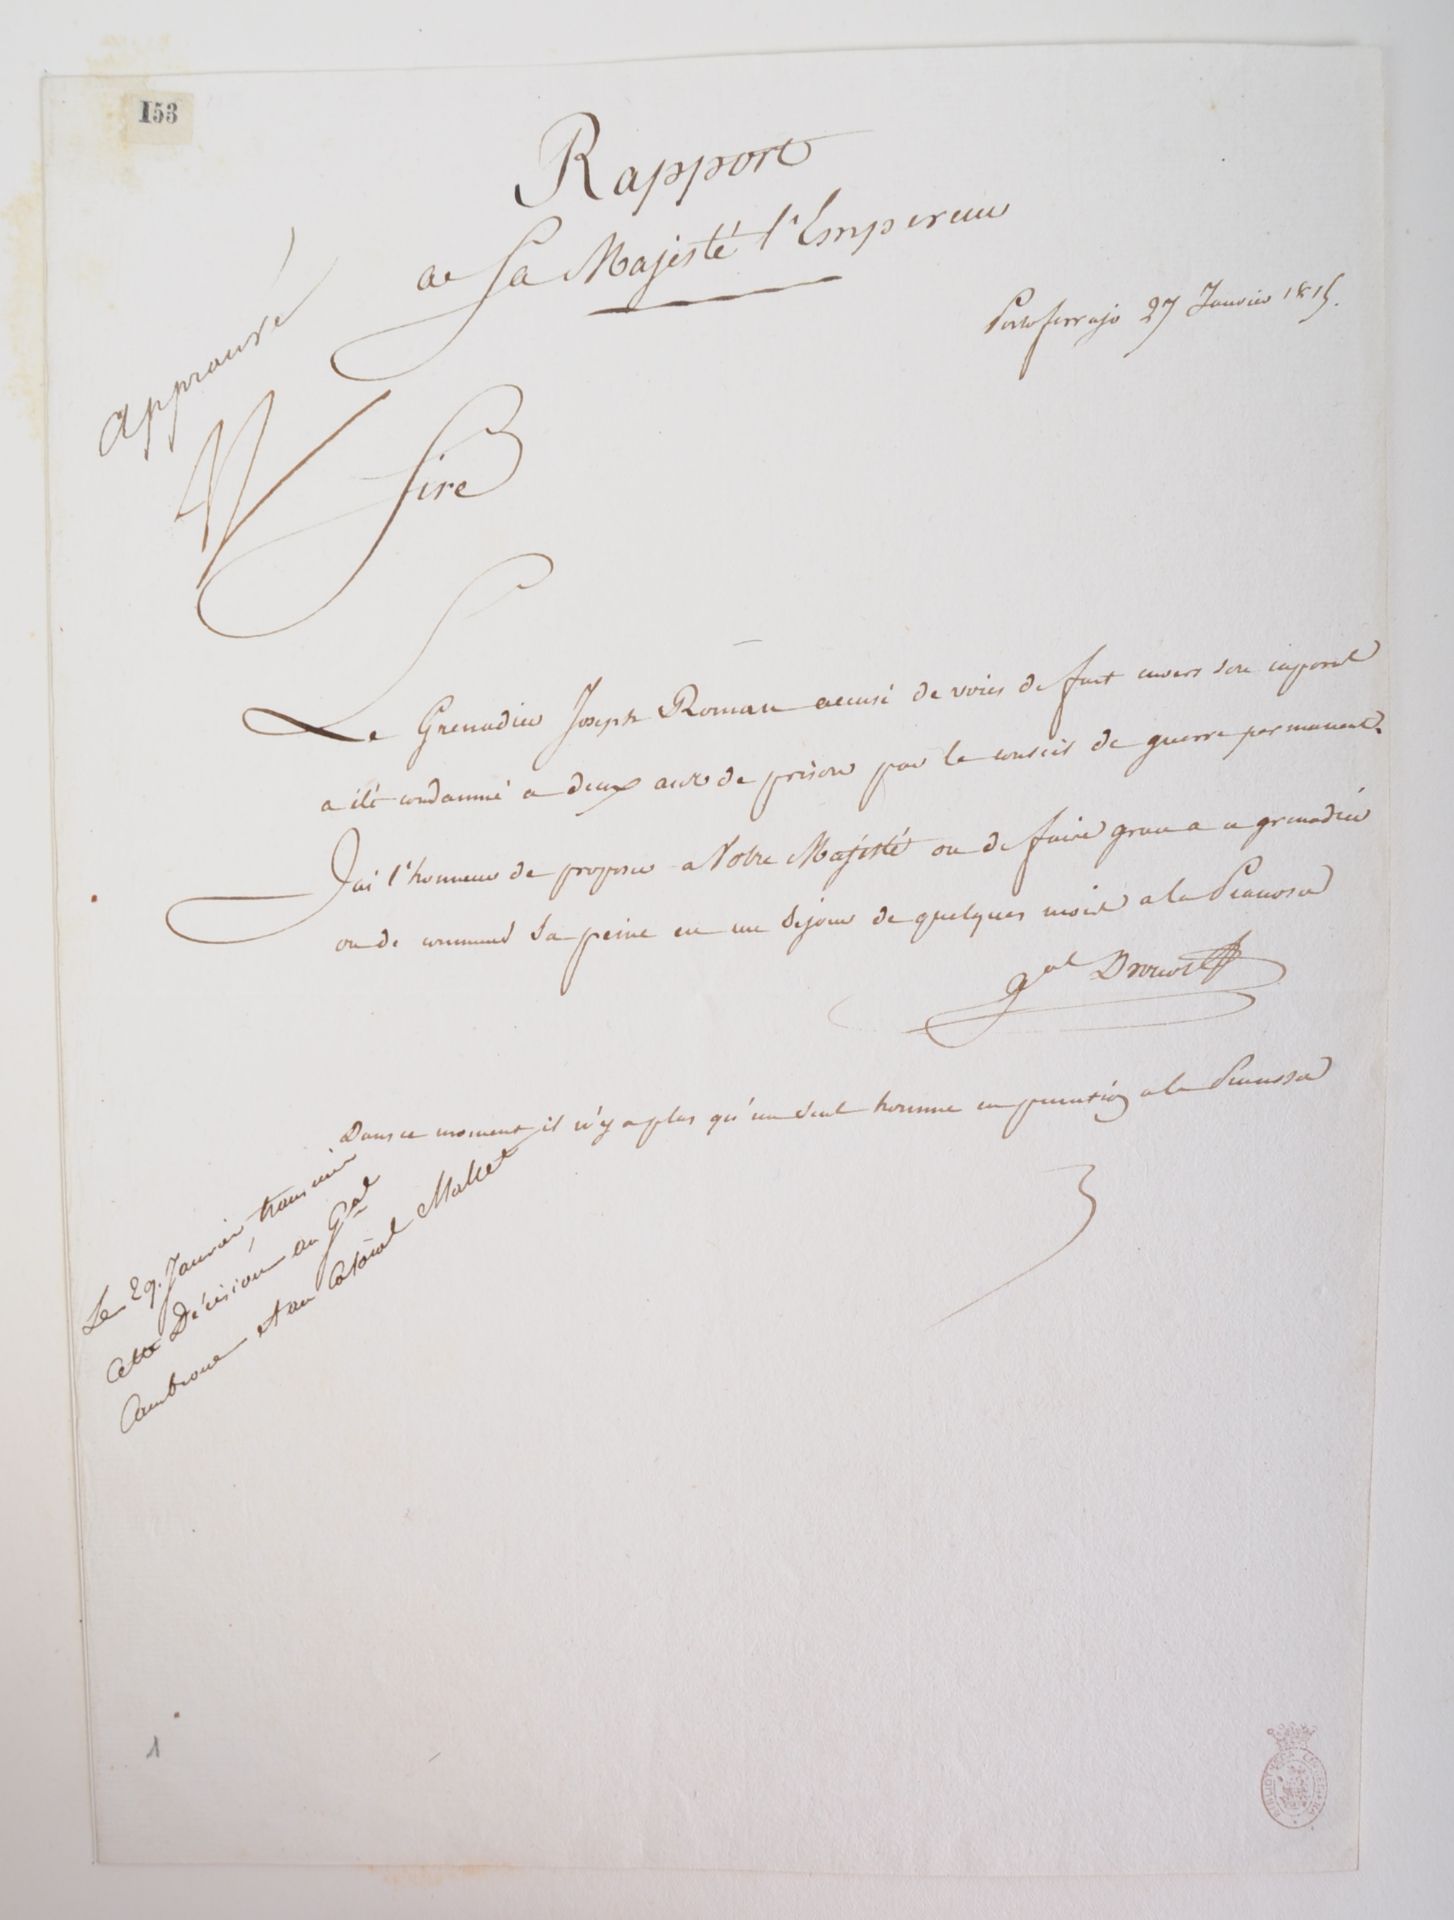 153
Rapport
a Sa Majesté l'Empereur
Portoferrajo 27 Janvier 1815.
approuvé
N
Sire
Le Grenadier Joseph Roman accusé de voies de fait envers son caporal
a été condamné a deux ans de prison par le conseil de guerre permanent.
J'ai l'honneur de proposer a Votre Majesté ou de faire grace a ce grenadier
ou de commuer sa peine en un séjour de quelques mois a la Pianosa
gal Drouot
Dans ce moment il n'y a plus qu'un seul homme en punition a la Pianosa
Le 29. Janvier, transmis
cette Décision au Gal
Cambrone et au Colonel Mallet
1
BIBLIOTECA